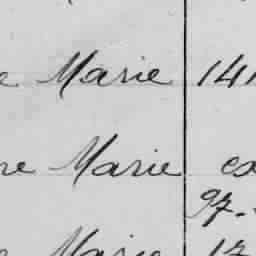 e Marie 141
re Marie ex
97-
e Marie 17